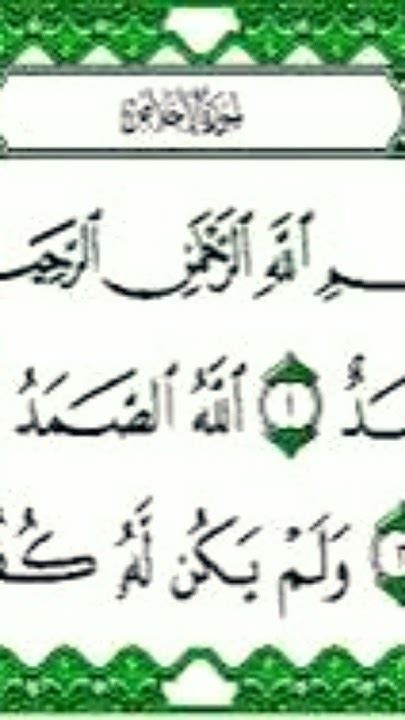 سورة الإخلاص
ـمِ ٱللَّهِ ٱلرَّحْمَٰنِ ٱلرَّحِيـ
ـَدٌ ١ ٱللَّهُ ٱلصَّمَدُ
٣ وَلَمْ يَكُن لَّهُ كُفُـ